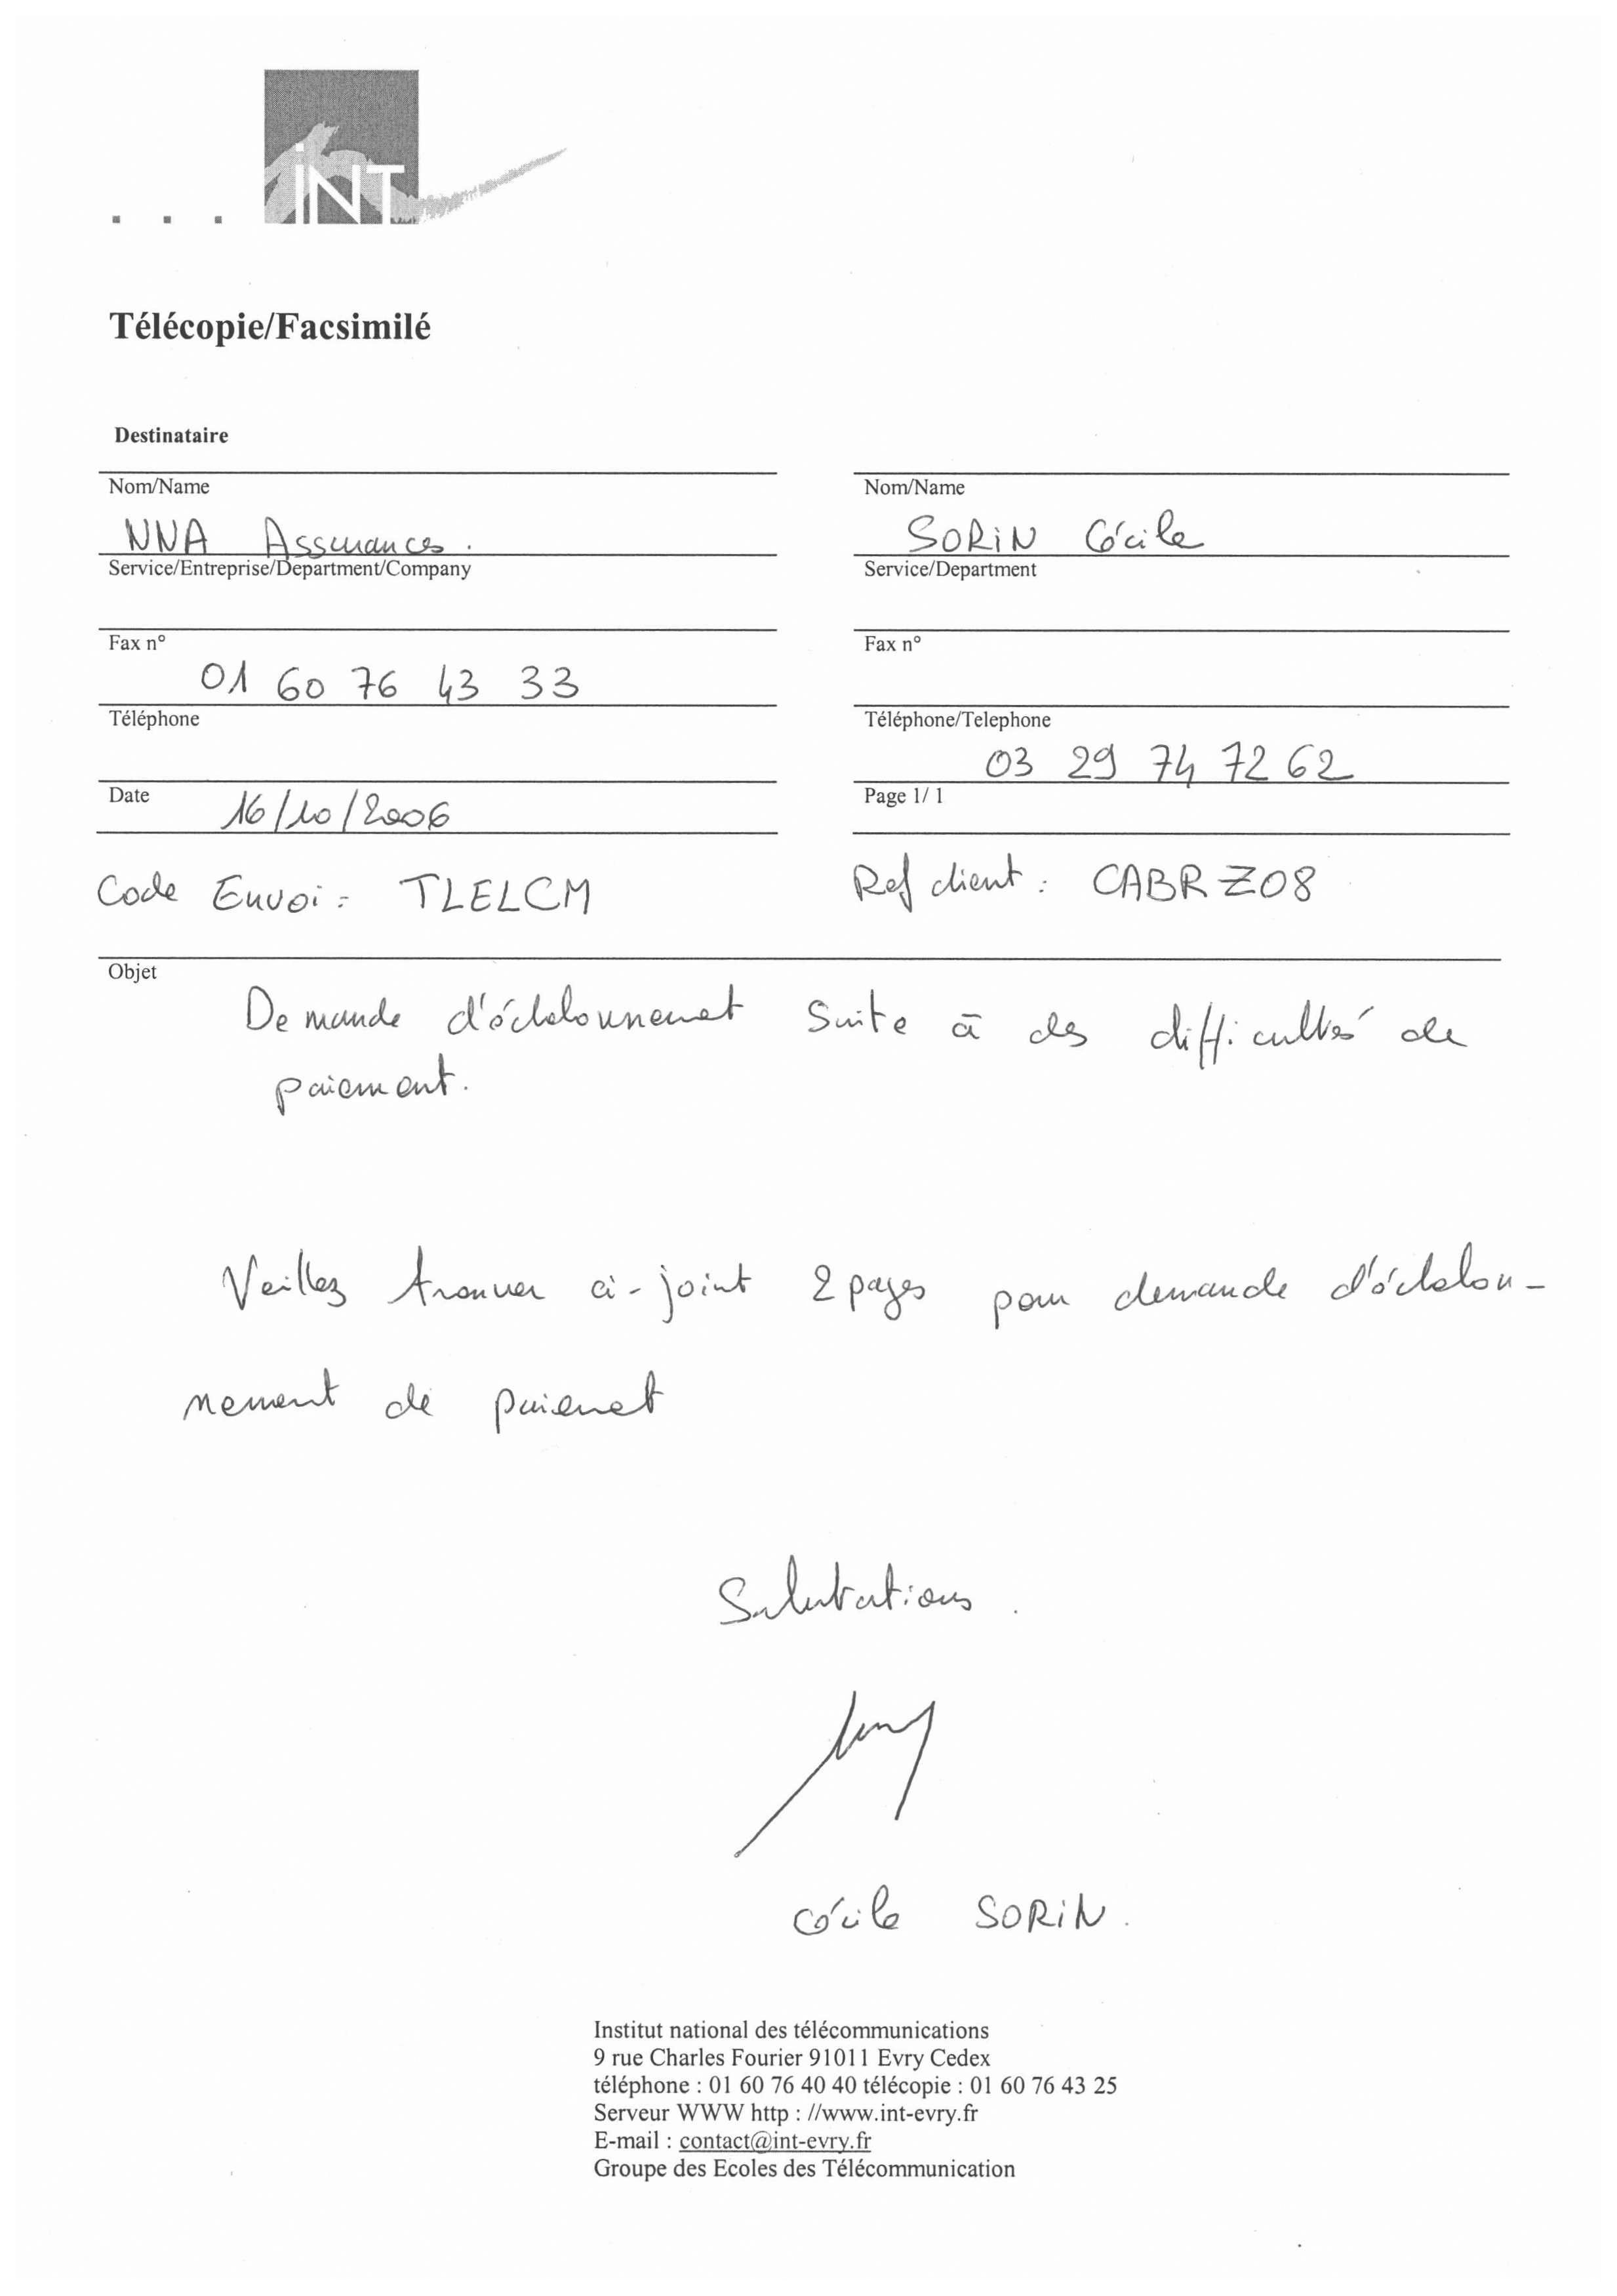 iNT
Télécopie/Facsimilé
Destinataire
Nom/Name
NNA Assurances.
Service/Entreprise/Department/Company
Fax n°
01 60 76 43 33
Téléphone
Date 16/10/2006
Nom/Name
SORIN Cécile
Service/Department
Fax n°
Téléphone/Telephone
03 29 74 72 62
Page 1/ 1
Code Envoi : TLELCM
Ref client : CABRZ08
Objet
Demande d'échelonnement suite à des difficultés de
paiement.
Veillez trouver ci-joint 2 pages pour demande d'échelon-
nement de paiement
Salutations.
Cécile SORIN.
Institut national des télécommunications
9 rue Charles Fourier 91011 Evry Cedex
téléphone : 01 60 76 40 40 télécopie : 01 60 76 43 25
Serveur WWW http : //www.int-evry.fr
E-mail : contact@int-evry.fr
Groupe des Ecoles des Télécommunication